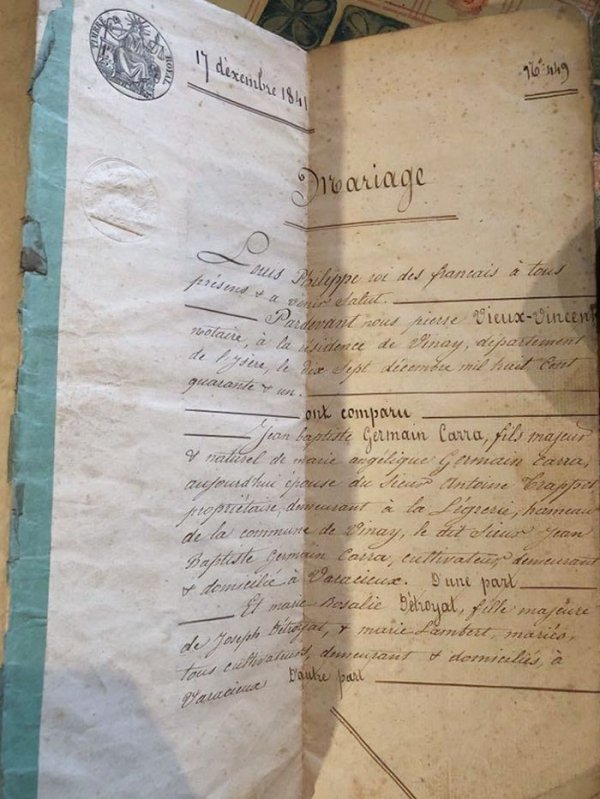 TIMBRE ROYAL
17 décembre 1841
No. 449
Mariage
Louis Philippe roi des francais à tous
présens & a venir Salut.
Pardevant nous pierre Vieux-Vincent
notaire, à la résidence de Vinay, département
de l'ysère, le dix Sept décembre mil huit Cent
quarante & un.
ont comparu
Jean baptiste Germain Carra, fils majeur
& naturel de marie angélique Germain Carra,
aujourd'hui épouse du Sieur Antoine Trappet
propriétaire, demeurant à la Légrerie, hameau
de la commune de Vinay, le dit Sieur Jean
Baptiste Germain Carra, cultivateur, demeurant
& domicilié à Varacieux. D'une part
Et marie Rosalie Détroyat, fille majeure
de Joseph Détroyat, & marie Lambert, mariés,
tous cultivateurs, demeurant & domiciliés, à
Varacieux D'autre part